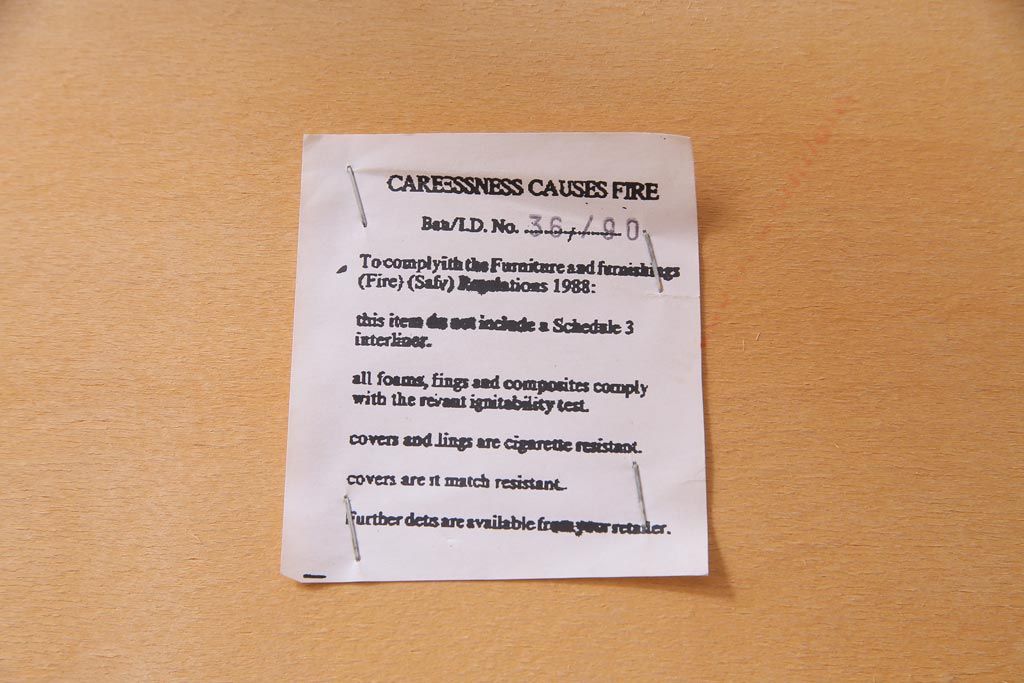 CAREESSNESS CAUSES FIRE
Ban/I.D. No. ........,........ 36/90
To complyith the Furniture and furnishings
(Fire) (Safv) Regulations 1988:
this item do not include a Schedule 3
interliner.
all foams, fings and composites comply
with the revant ignitability test.
covers and lings are cigarette resistant.
covers are it match resistant.
Further dets are available from your retailer.